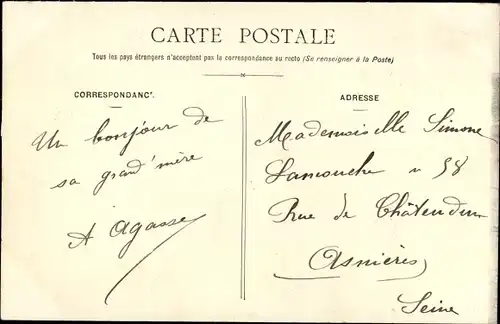 CARTE POSTALE
Tous les pays étrangers n'acceptent pas la correspondance au recto (Se renseigner à la Poste)
CORRESPONDANCE
Un bonjour de
sa grand'mère
A Agasse
ADRESSE
Mademoiselle Simone
Lamouche n 98
Rue de Châteaudun
Asnières
Seine